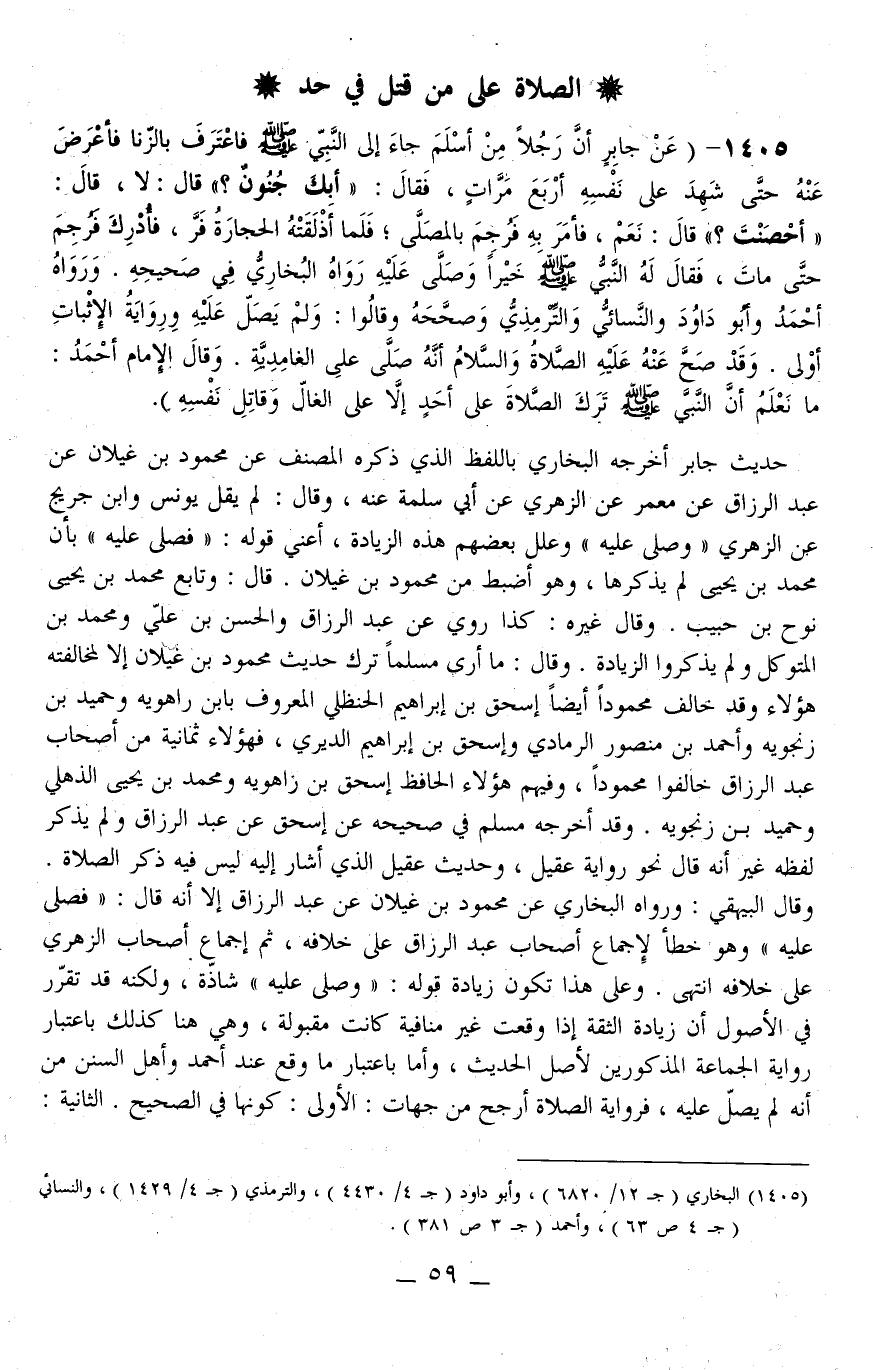 ✹ الصلاة على من قتل في حد ✹
١٤٠٥- ( عَنْ جابِرٍ أنَّ رَجُلاً مِنْ أسْلَمَ جاءَ إلى النَّبِيّ ﷺ فاعْتَرَفَ بالزّنا فأعْرَضَ
عَنْهُ حتَّى شَهِدَ على نَفْسِهِ أرْبَعَ مَرَّاتٍ ، فَقالَ : « أبِكَ جُنُونٌ ؟» قال : لا ، قالَ :
« أحْصَنْتَ ؟» قالَ : نَعَمْ ، فأمَرَ بِهِ فَرُجِمَ بالمصَلَّى ؛ فَلَما أذْلَقَتْهُ الحجارَةُ فَرَّ ، فأُدْرِكَ فَرُجِمَ
حتَّى ماتَ ، فَقالَ لَهُ النَّبيُّ ﷺ خَيْراً وَصَلَّى عَلَيْهِ رَوَاهُ البُخارِيُّ فِي صَحيحِهِ . وَرَوَاهُ
أحْمَدُ وأبُو دَاوُدَ والنَّسائيُّ وَالتِّرْمِذيُّ وَصحَّحَهُ وقالُوا : وَلمْ يَصَلّ عَلَيْهِ ورِوايَةُ الإثْباتِ
أوْلى . وَقَدْ صَحَّ عَنْهُ عَلَيْهِ الصلاةُ وَالسلامُ أنَّهُ صَلَّى علىِ الغامِدِيَّةِ . وَقالَ الإمام أحْمَدُ :
ما نَعْلَمُ أنَّ النَّبيَّ ﷺ تَرَكَ الصَّلاةَ على أحَدٍ إلَّا على الغالّ وَقاتِلِ نَفْسِهِ ).
حديث جابر أخرجه البخاري باللفظ الذي ذكره المصنف عن محمود بن غيلان عن
عبد الرزاق عن معمر عن الزهري عن أبي سلمة عنه ، وقال : لم يقل يونس وابن جريج
عن الزهري « وصلى عليه » وعلل بعضهم هذه الزيادة ، أعني قوله : « فصلى عليه » بأن
محمد بن يحيى لم يذكرها ، وهو أضبط من محمود بن غيلان . قال : وتابع محمد بن يحيى
نوح بن حبيب . وقال غيره : كذا روي عن عبد الرزاق والحسن بن عليّ ومحمد بن
المتوكل ولم يذكروا الزيادة . وقال : ما أرى مسلماً ترك حديث محمود بن غيلان إلا لمخالفته
هؤلاء وقد خالف محموداً أيضاً إسحق بن إبراهيم الحنظلي المعروف بابن راهويه وحميد بن
زنجويه وأحمد بن منصور الرمادي وإسحق بن إبراهيم الديري ، فهؤلاء ثمانية من أصحاب
عبد الرزاق خالفوا محموداً ، وفيهم هؤلاء الحافظ إسحق بن زاهويه ومحمد بن يحيى الذهلي
وحميد بـن زنجويه . وقد أخرجه مسلم في صحيحه عن إسحق عن عبد الرزاق ولم يذكر
لفظه غير أنه قال نحو رواية عقيل ، وحديث عقيل الذي أشار إليه ليس فيه ذكر الصلاة .
وقال البيهقي : ورواه البخاري عن محمود بن غيلان عن عبد الرزاق إلا أنه قال : « فصلى
عليه » وهو خطأ لإجماع أصحاب عبد الرزاق على خلافه ، ثم إجماع أصحاب الزهري
على خلافه انتهى . وعلى هذا تكون زيادة قوله : « وصلى عليه » شاذّة ، ولكنه قد تقرّر
في الأصول أن زيادة الثقة إذا وقعت غير منافية كانت مقبولة ، وهي هنا كذلك باعتبار
رواية الجماعة المذكورين لأصل الحديث ، وأما باعتبار ما وقع عند أحمد وأهل السنن من
أنه لم يصلّ عليه ، فرواية الصلاة أرجح من جهات : الأولى : كونها في الصحيح . الثانية :
(١٤٠٥) البخاري ( جـ ١٢/ ٦٨٢٠ ) ، وأبو داود ( جـ ٤/ ٤٤٣٠ ) ، والترمذي ( جـ ٤/ ١٤٢٩ ) ، والنسائي
( جـ ٤ ص ٦٣ ) ، وأحمد ( جـ ٣ ص ٣٨١ ) .
_ ٥٩ _